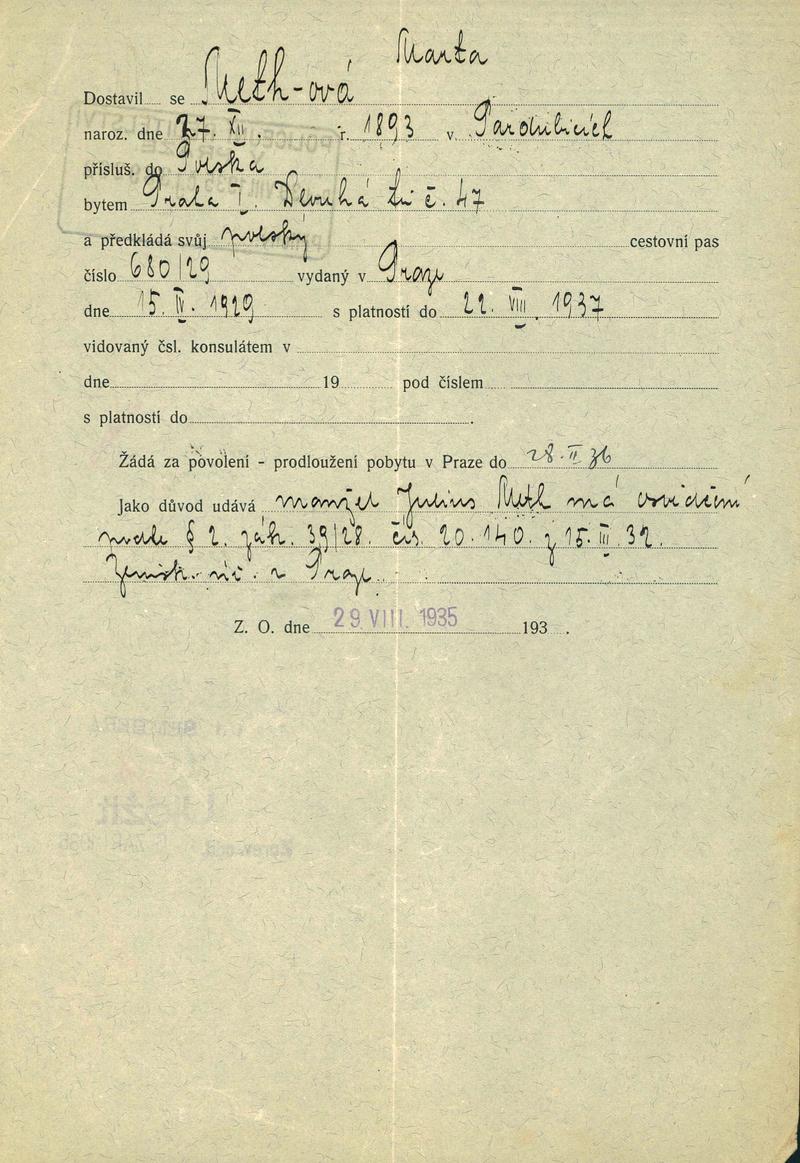 Marta
Dostavil se Meth-ová
naroz. dne 27. XII. r. 1893 v Pardubicích
přísluš. do Polska
bytem Praha I. Dlouhá tř. č. 47
a předkládá svůj polský cestovní pas
číslo 680/29 vydaný v Praze
dne 15. IV. 1929 s platností do 22. VIII. 1937
vidovaný čsl. konsulátem v
dne 19 pod číslem
s platností do .
Žádá za povolení - prodloužení pobytu v Praze do 28. II. 36
Jako důvod udává manžel Julius Meth má
§ 2. zák. 39/28. čís. 20.140. z 15. III. 32.
v Praze.
Z. O. dne 29. VIII. 1935 193 .